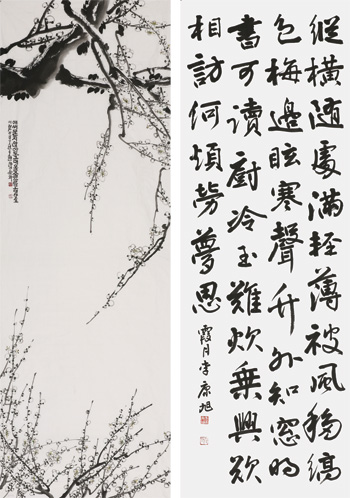 縱橫隨處滿輕薄被風移縞
色梅邊眩寒聲竹外知窓明
書可讀廚冷玉難炊乘興欲
相訪何煩勞夢思
霞月李康旭